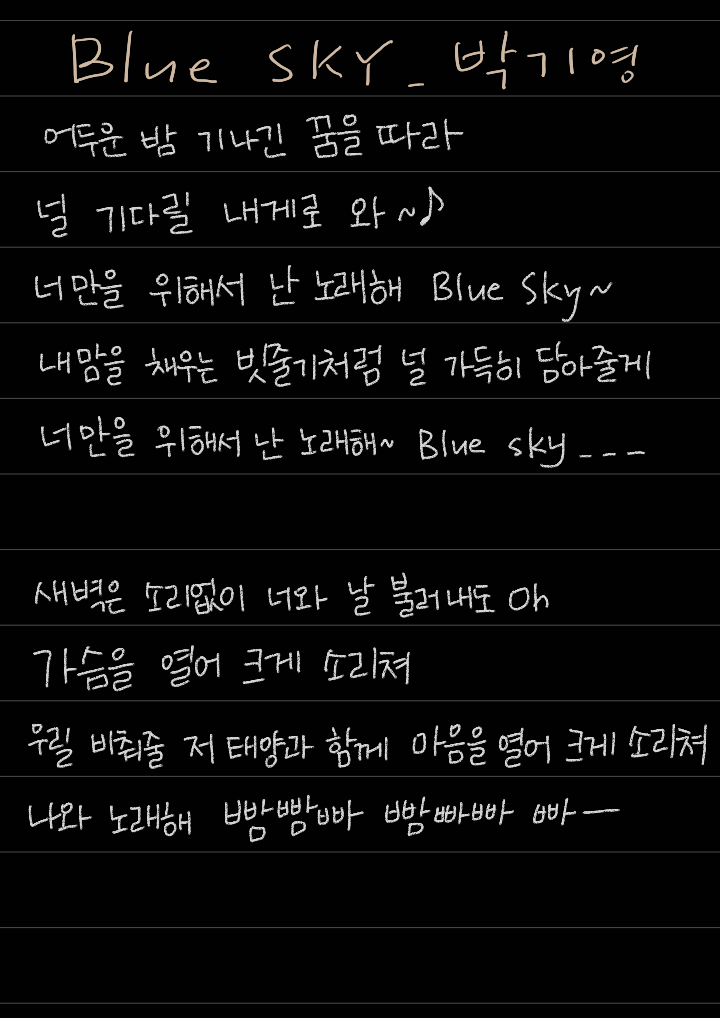 Blue SKY_박기영
어두운 밤 기나긴 꿈을 따라
널 기다릴 내게로 와~♪
너만을 위해서 난 노래해 Blue Sky~
내맘을 채우는 빗줄기처럼 널 가득히 담아줄게
너만을 위해서 난 노래해~ Blue sky___
새벽은 소리없이 너와 날 불러내도 Oh
가슴을 열어 크게 소리쳐
우릴 비춰줄 저 태양과 함께 마음을 열어 크게 소리쳐
나와 노래해 빰빵빠 빰빠빠 빠ㅡ